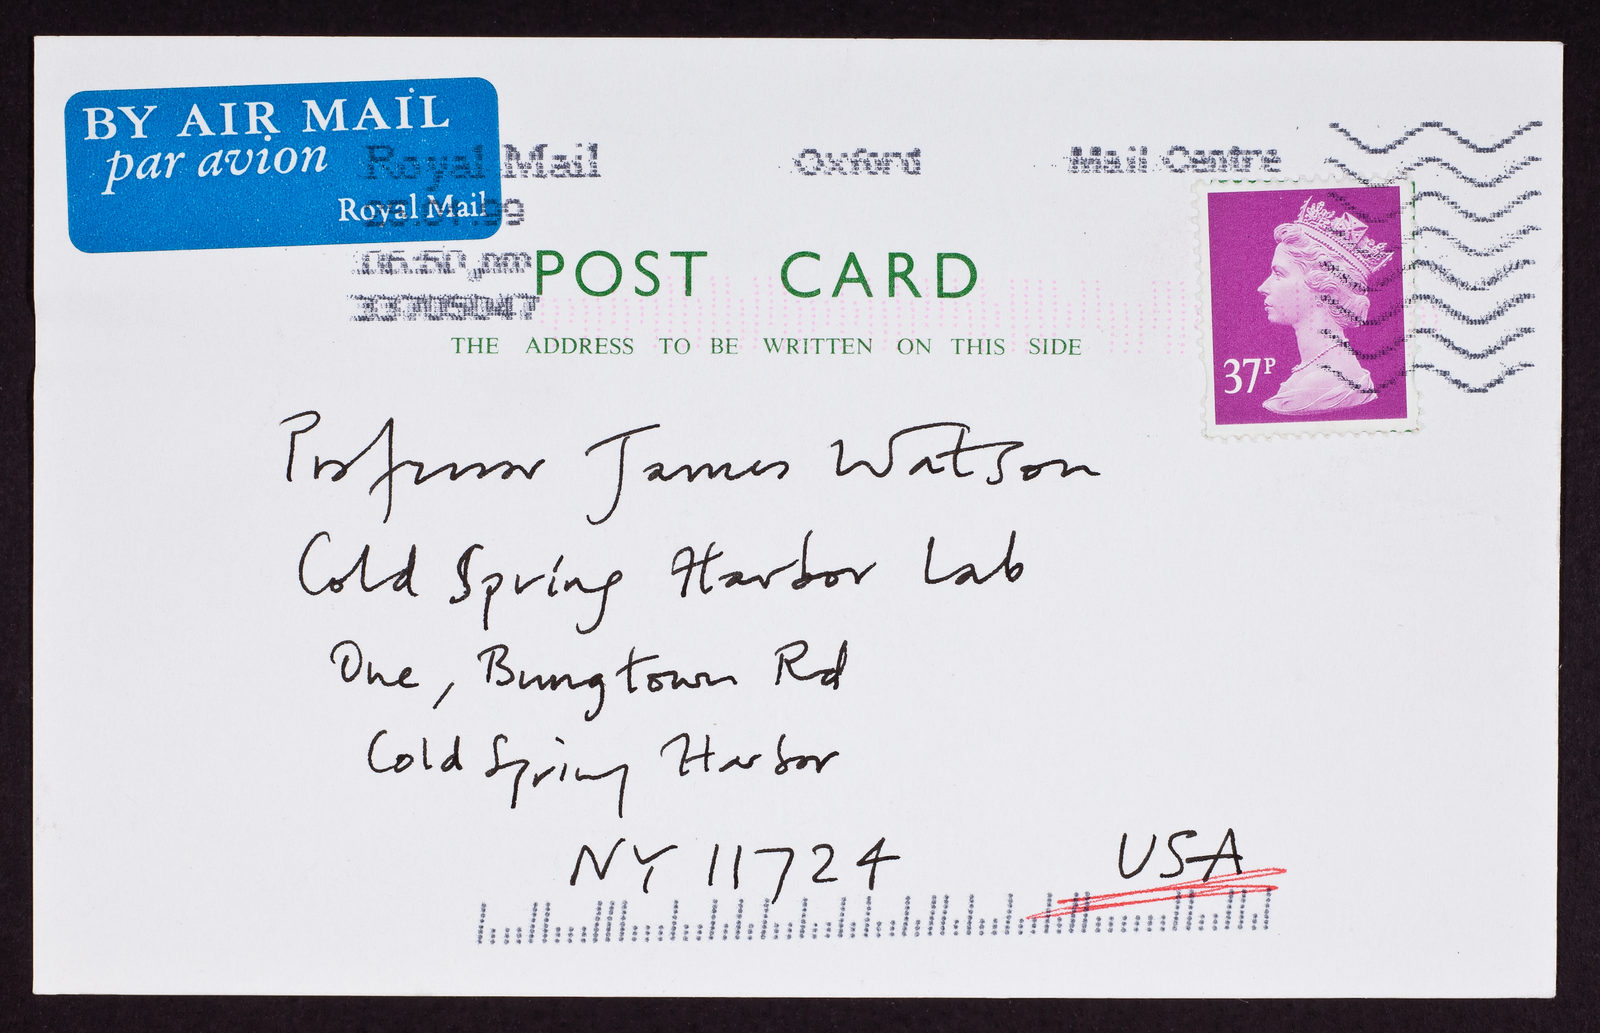 BY AIR MAIL
par avion
Royal Mail
Royal Mail Oxford Mail Centre
POST CARD
THE ADDRESS TO BE WRITTEN ON THIS SIDE
37P
Professor James Watson
Cold Spring Harbor Lab
One, Bungtown Rd
Cold Spring Harbor
NY 11724 USA